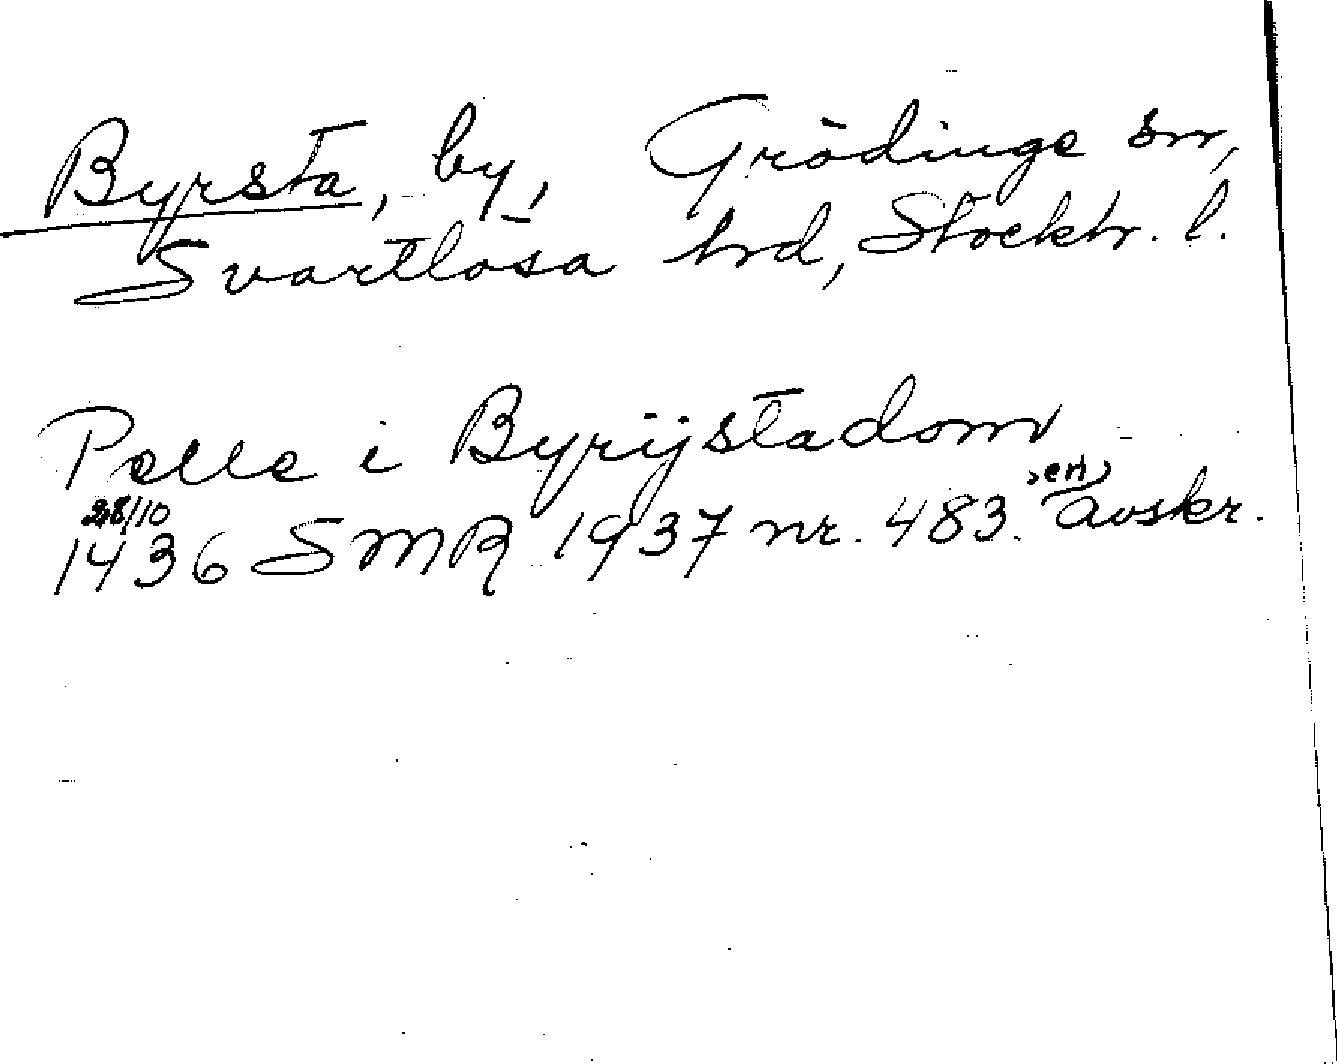 Byrsta, by, Grödinge sn,
Svartlösa hrd, Stockh. l.
Pelle i Byrijstadom
28/10
1436 SMR 1937 nr. 483. avskr.